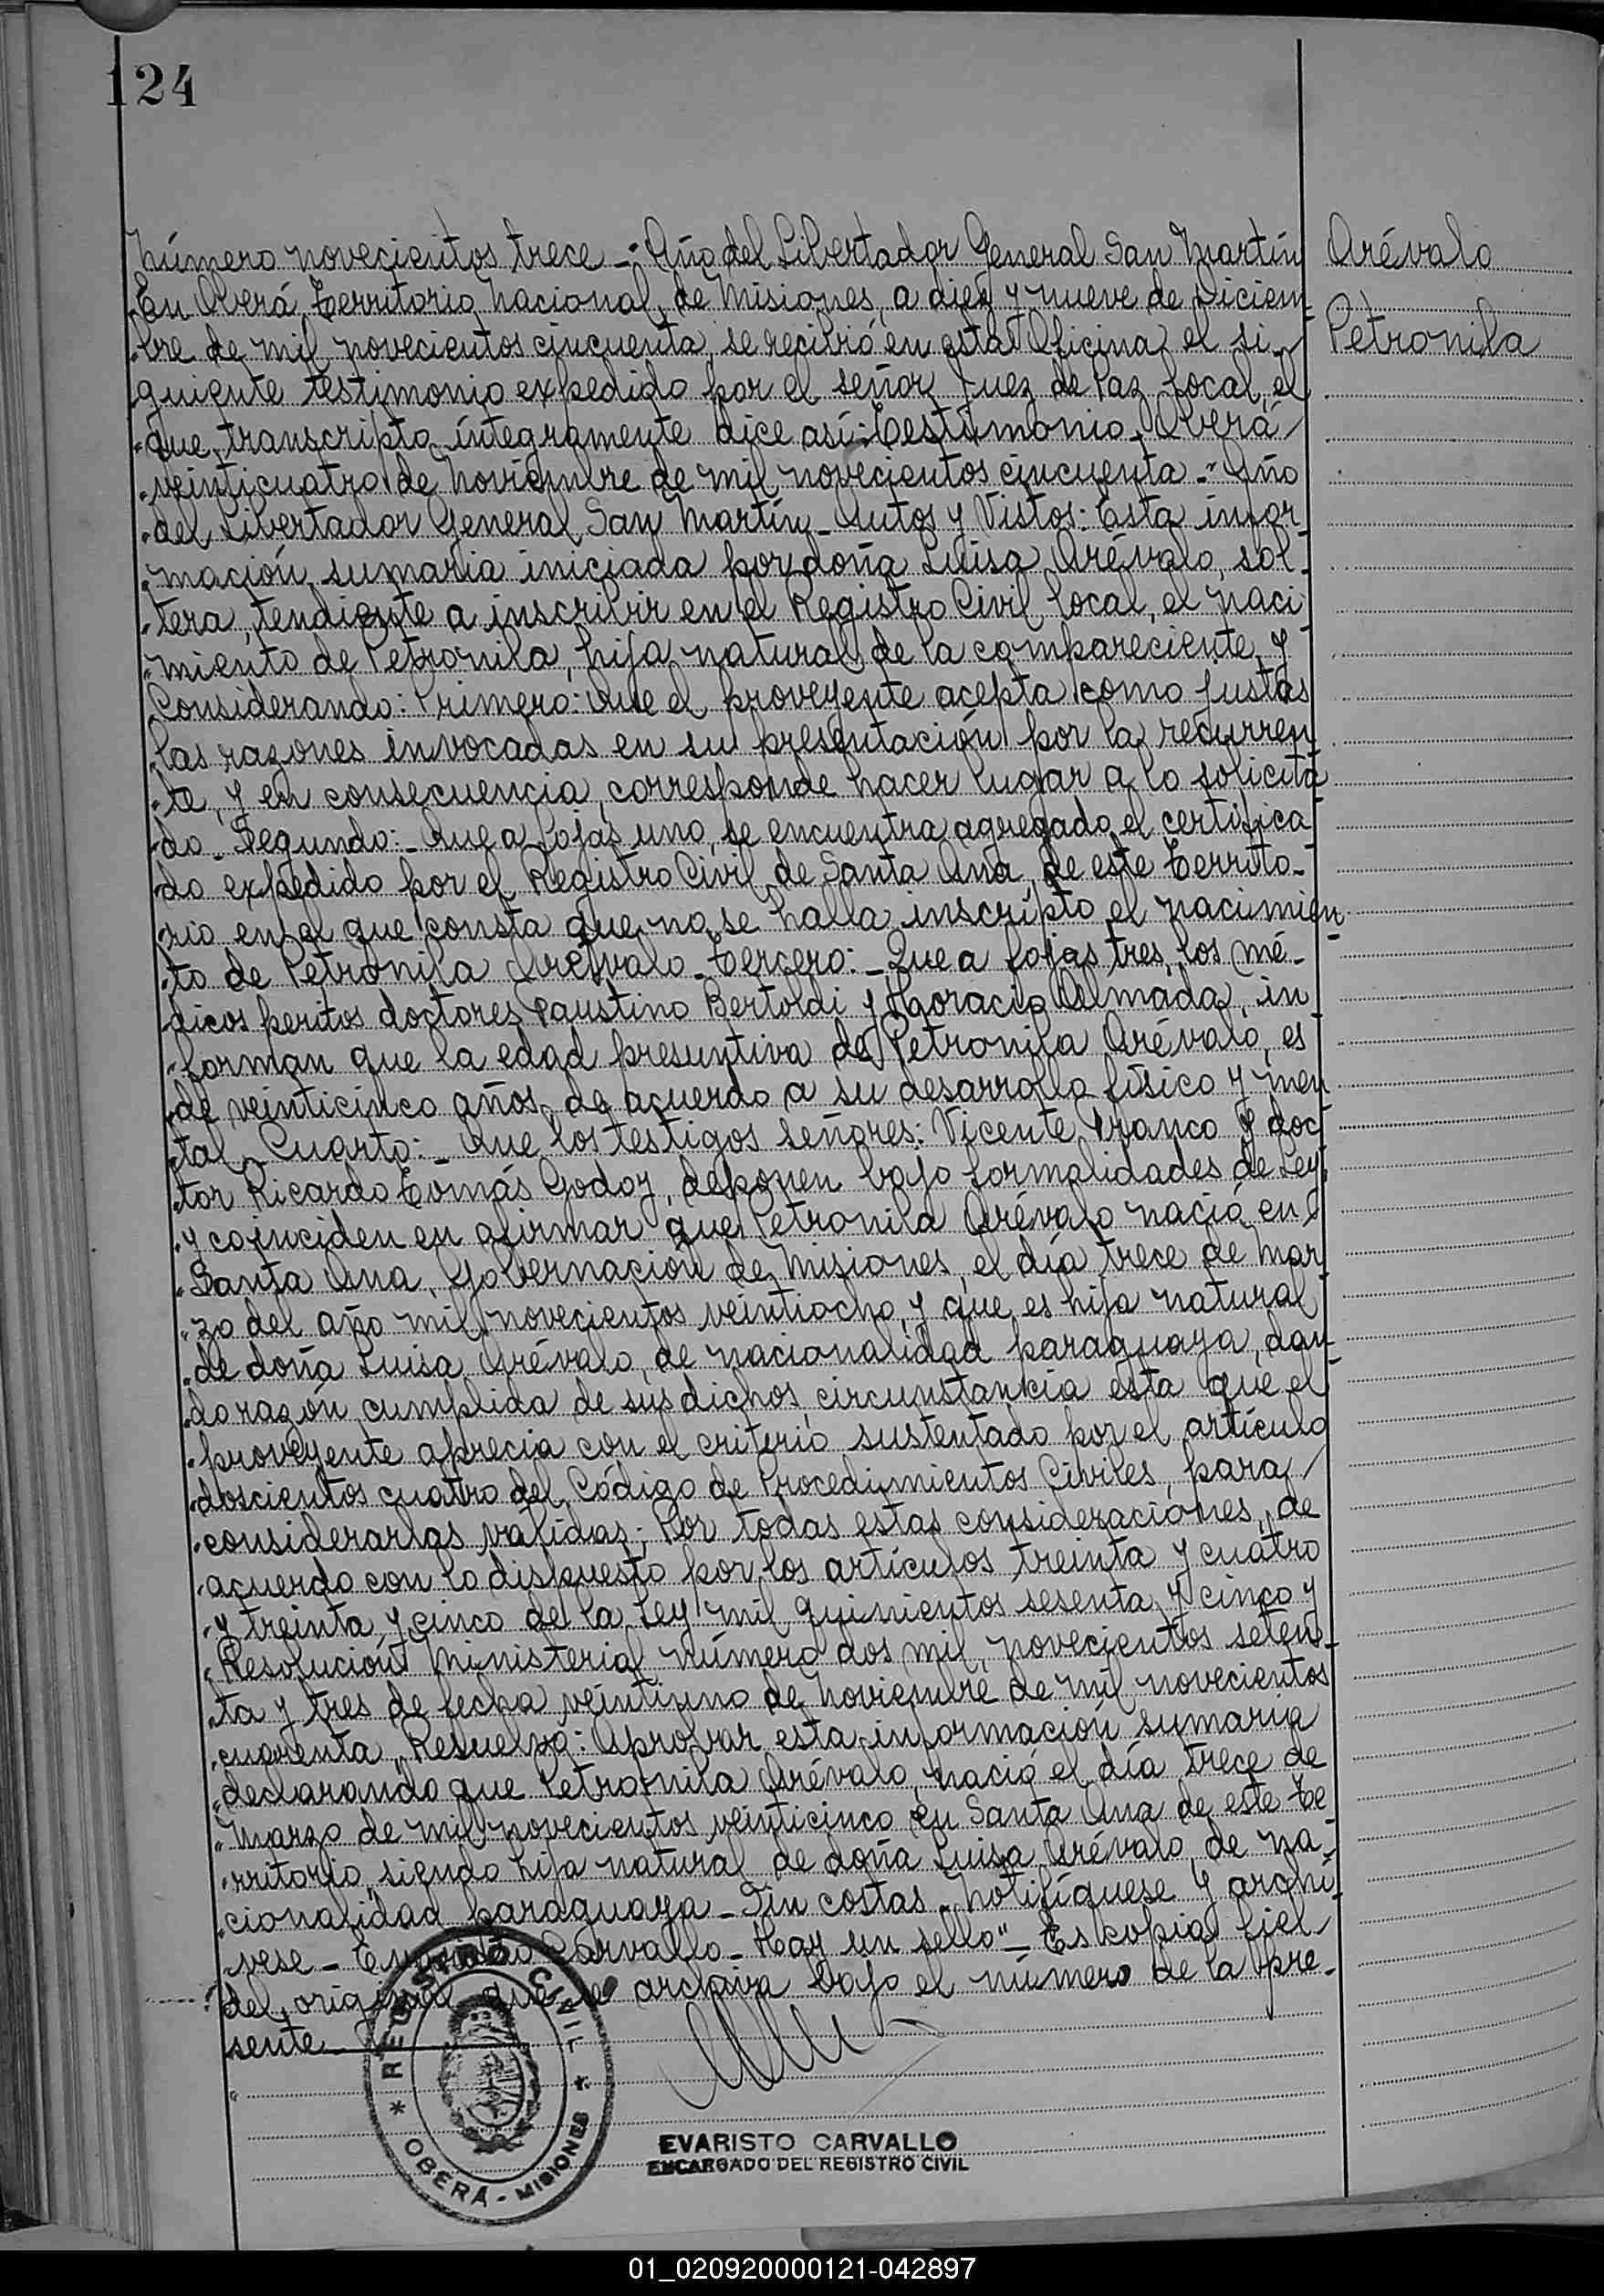 124
Número novecientos trece - "Año del Libertador General San Martín
En Oberá, Territorio Nacional de Misiones, a diez y nueve de Diciem-
bre de mil novecientos cincuenta, se recibió en esta Oficina el si-
guiente testimonio expedido por el señor Juez de Paz local, el
que transcripto íntegramente dice así: Testimonio. Oberá
veinticuatro de Noviembre de mil novecientos cincuenta - "Año
del Libertador General San Martín - Autos y Vistos: Esta infor-
mación sumaria iniciada por doña Luisa Arévalo, sol-
tera, tendiente a inscribir en el Registro Civil local, el naci
miento de Petronila, hija natural de la compareciente, y
Considerando: Primero: Que el proveyente acepta como justas
las razones invocadas en su presentación por la recurren
te, y en consecuencia, corresponde hacer lugar a lo solicita
do - Segundo: - Que a fojas uno, se encuentra agregado el certifica
do expedido por el Registro Civil de Santa Ana, de este Territo-
rio en el que consta que no se halla inscripto el nacimien-
to de Petronila Arévalo - Tercero: - Que a fojas tres, los mé-
dicos peritos doctores Faustino Bertoldi y Horacio Almada, in
forman que la edad presuntiva de Petronila Arévalo, es
de veinticinco años, de acuerdo a su desarrollo físico y men
tal - Cuarto: - Que los testigos señores: Vicente Franco y doc
tor Ricardo Tomás Godoy, deponen bajo formalidades de Ley
y coinciden en afirmar que Petronila Arévalo nació en
Santa Ana, Gobernación de Misiones, el día trece de Mar
zo del año mil novecientos veintiocho, y que es hija natural
de doña Luisa Arévalo, de nacionalidad paraguaya, dan-
do razón cumplida de sus dichos, circunstancia esta que el
proveyente aprecia con el criterio sustentado por el artículo
doscientos cuatro del Código de Procedimientos Civiles, para
considerarlas válidas; Por todas estas consideraciones, de
acuerdo con lo dispuesto por los artículos treinta y cuatro
y treinta y cinco de la Ley mil quinientos sesenta y cinco y
Resolución Ministerial número dos mil, novecientos seten-
ta y tres de fecha veintiuno de Noviembre de mil novecientos
cuarenta, Resuelvo: Aprobar esta información sumaria
declarando que Petronila Arévalo, nació el día trece de
Marzo de mil novecientos veinticinco en Santa Ana de este Te
rritorio, siendo hija natural de doña Luisa Arévalo, de na-
cionalidad paraguaya - Sin costas - Notifíquese y archí-
vese - Evaristo Carvallo - Hay un sello" - Es copia fiel
del original que se archiva bajo el número de la pre-
sente -
Arévalo
Petronila
REGISTRO CIVIL
* OBERÁ - MISIONES *
EVARISTO CARVALLO
ENCARGADO DEL REGISTRO CIVIL
01_020920000121-042897